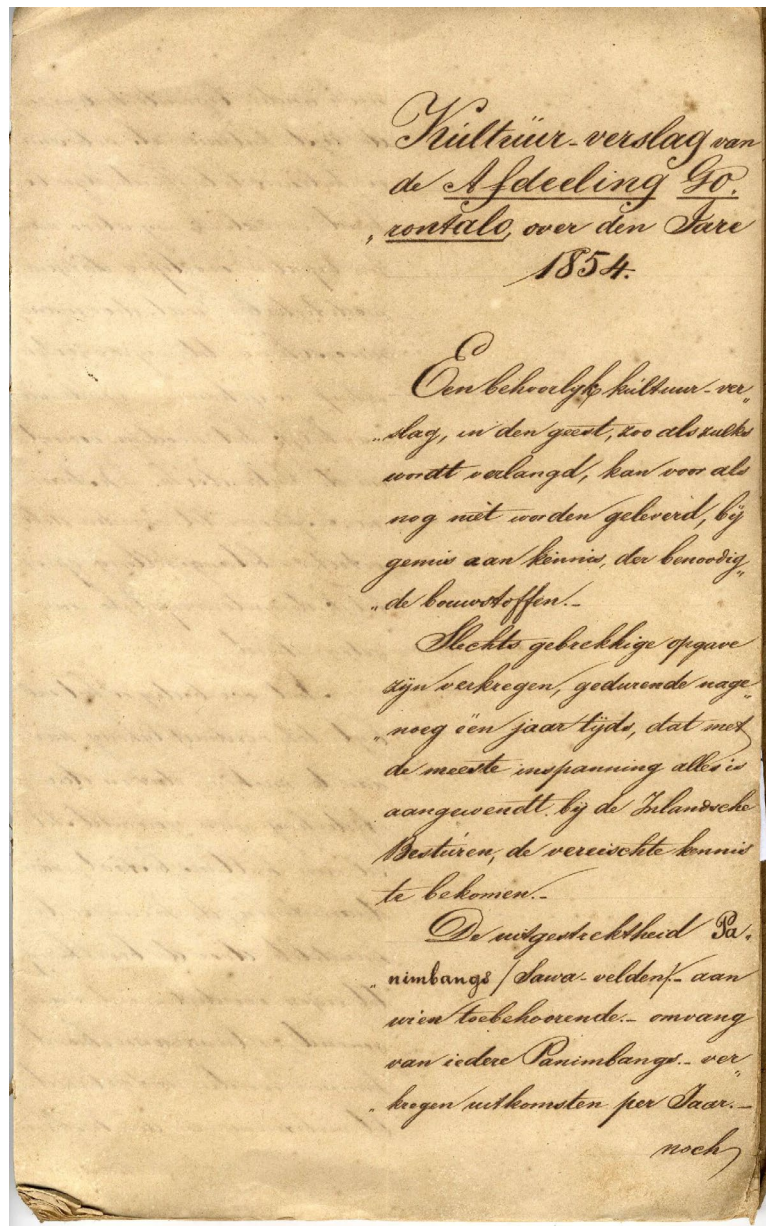 Kultuur-verslag van
de Afdeeling Go„
„rontalo, over den Jare
1854.
Een behoorlijk kultuur-ver„
„slag, in den geest, zoo als zulks
wordt verlangd, kan voor als
nog niet worden geleverd, bij
gemis aan kennis, der benoodig„
„de bouwstoffen._
Slechts gebrekkige opgave
zijn verkregen, gedurende nage„
noeg één jaar tijds, dat met
de meeste inspanning alles is
aangewendt bij de Inlandsche
Besturen, de vereischte kennis
te bekomen._
De uitgestrektheid Pa„
„nimbangs / Sawa-velden /_ aan
wien toebehoorende._ omvang
van iedere Panimbangs._ ver„
„kregen uitkomsten per Jaar._
noch